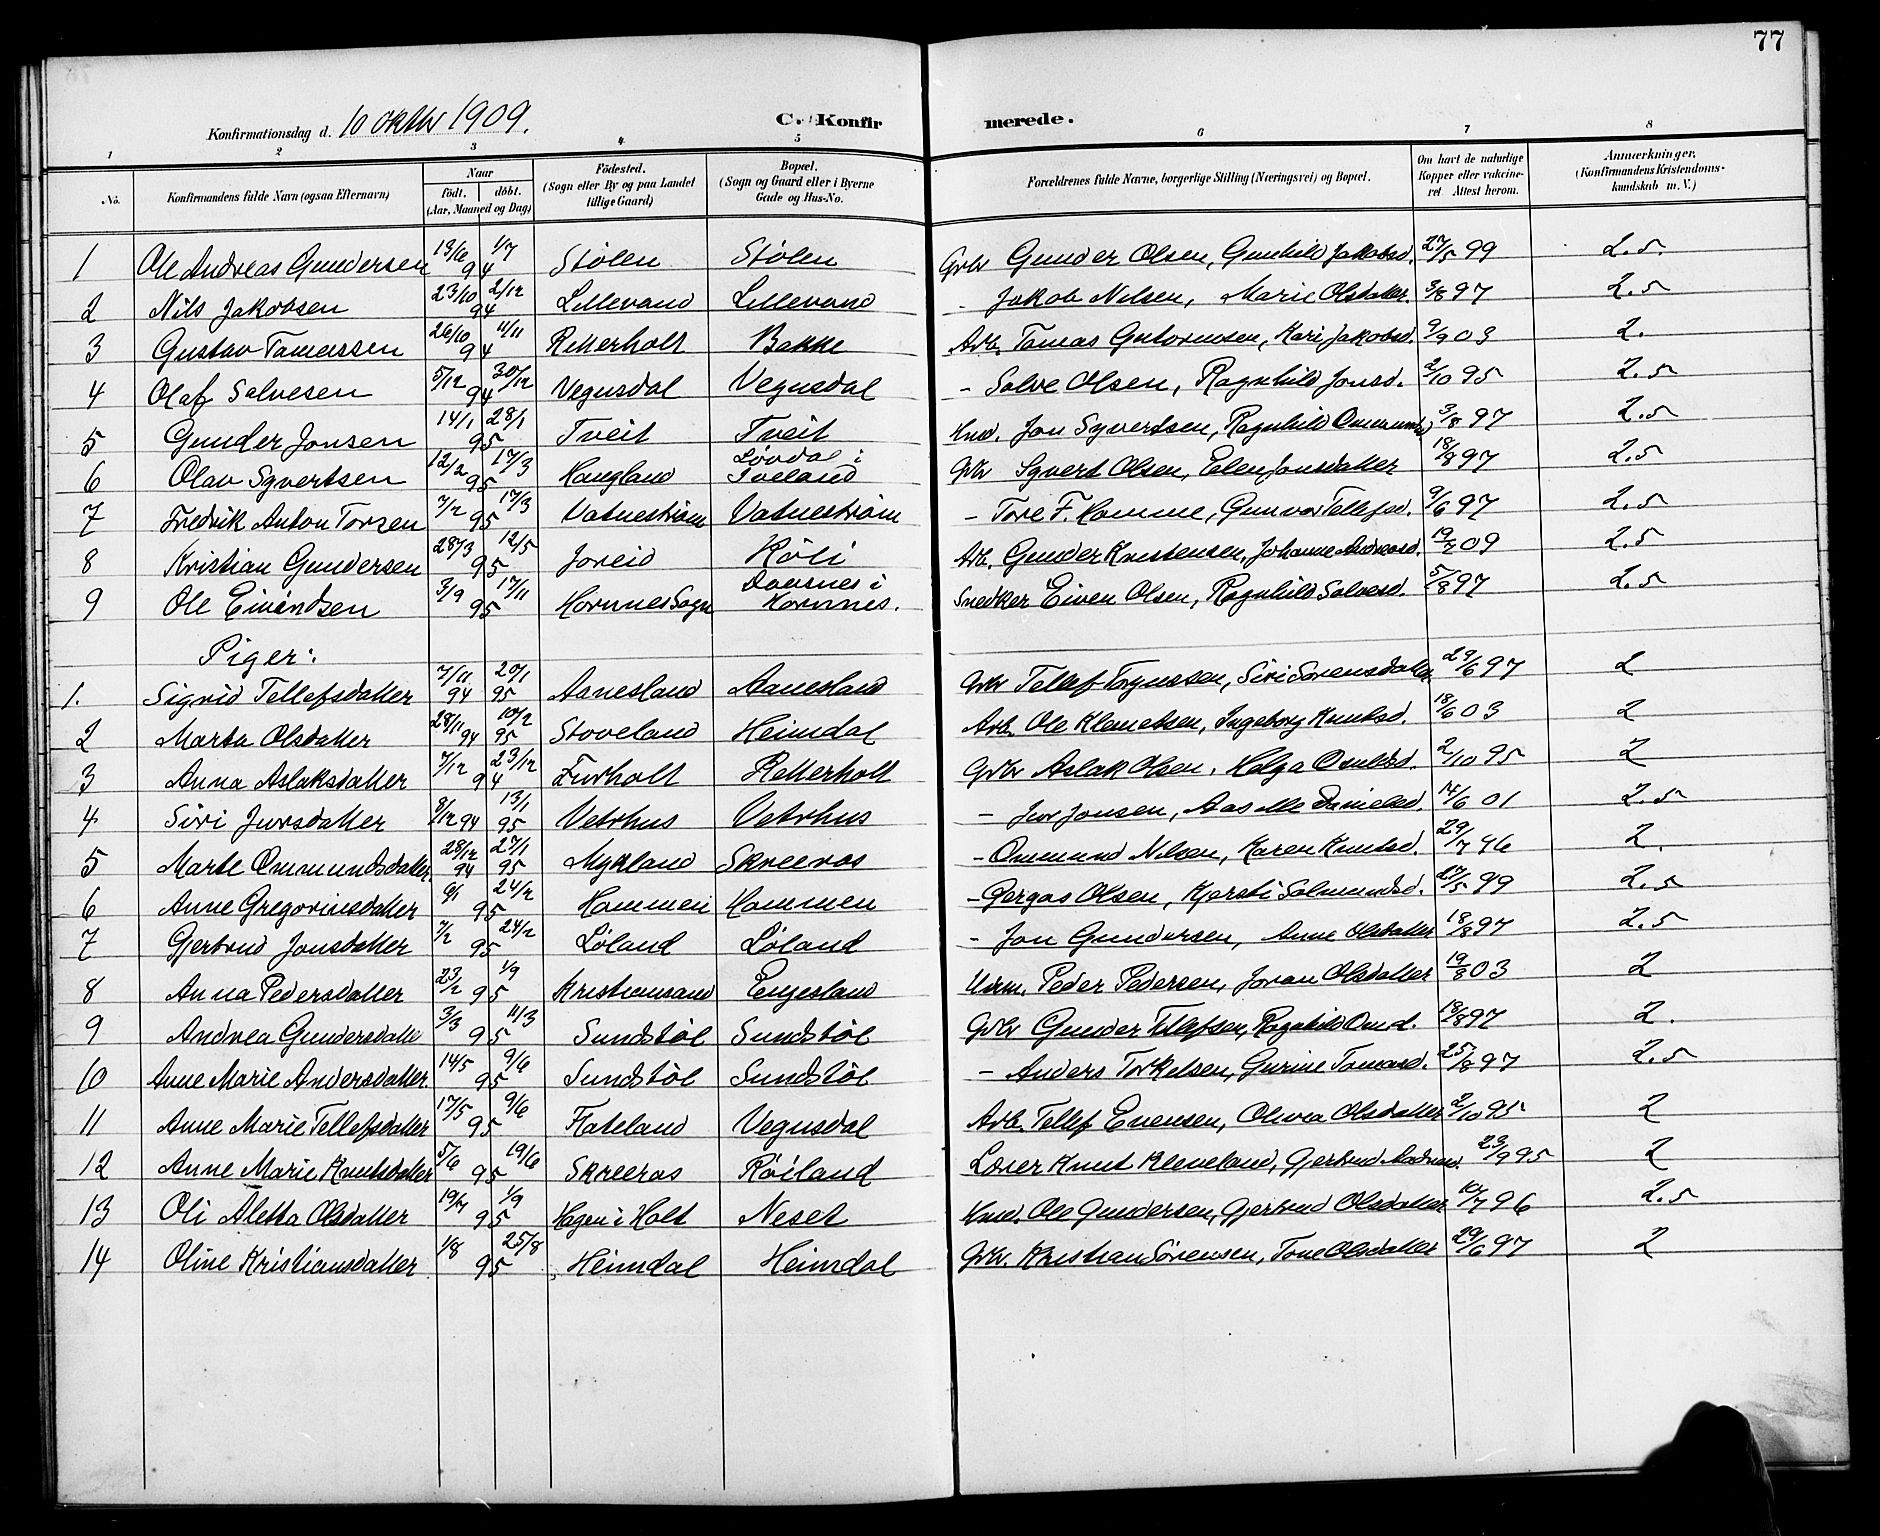 77
Konfirmationsdag d. 10 oktbr 1909.
C. Konfirmerede.
1 2 3 4 5 6 7 8
No. Konfirmandens fulde Navn (ogsaa Efternavn) Naar født. døbt. (Aar, Maaned og Dag) Fødested. (Sogn eller By og paa Landet tillige Gaard) Bopæl. (Sogn og Gaard eller i Byerne Gade og Hus-No. Forældrenes fulde Navne, borgerlige Stilling (Næringsvei) og Bopæl. Om havt de naturlige Kopper eller vaccineret Attest herom. Anmærkninger, (Konfirmandens Kristendomskundskab m. V.)
1 Ole Andreas Gundersen 13/6 1/7 94 Stølen Stølen Gbr Gunder Olsen, Gunhild Jakobsd. 27/5 99 2.5
2 Nils Jakobsen 23/10 2/12 94 Lillevand Lillevand - Jakob Nilsen, Marie Olsdatter 3/8 97 2.5
3 Gustav Tomassen 26/10 11/11 94 Retterholt Bakke Arb. Tomas Guttormsen, Kari Jakobsd. 9/9 03 2.
4 Olaf Salvesen 5/12 30/12 94 Vegusdal Vegusdal - Salve Olsen, Ragnhild Jonsd. 2/10 95 2.5
5 Gunder Jonsen 14/1 28/1 95 Tveit Tveit Kmd. Jon Syvertsen, Ragnhild 3/8 97 2.5
6 Olav Syvertsen 12/2 17/3 95 Haugland Løvdal i Iveland Gbr Syvert Olsen, Elen Jonsdatter 18/8 97 2.5
7 Fredrik Anton Torsen 7/2 17/3 95 Vatnestrøm Vatnestrøm - Tore F. Homme, Gunvor Tellefsd. 9/6 97 2.5
8 Kristian Gundersen 28/3 12/5 95 Joreid Røli Arb. Gunder Kristensen, Johanne Andreasd. 19/7 09 2.5
9 Ole Eivindsen 3/9 17/11 95 Hornnes Sogn Daasnes i Hornnes. Snedker Eiven Olsen, Ragnhild Salvesd. 5/8 97 2.5
Piger:
1. Sigrid Tellefsdatter 7/11 94 20/1 95 Aanesland Aanesland Gbr Tellef Torjussen, Siri Sørensdatter 29/6 97 2
2 Marta Olsdatter 28/11 94 10/2 95 Stoveland Heimdal Arb. Ole Klemetsen, Ingeborg Knutsd. 18/6 03 2
3 Anna Aslaksdatter 7/12 23/12 94 Furholt Retterholt Gbr Aslak Olsen, Helga Osuldsd. 2/10 95 2
4 Siri Jursdatter 8/12 94 13/1 95 Vetrhus Vetrhus - Jur Jonsen, Aasille Danielsd. 14/6 01 2.5
5 Marte Ommundsdatter 28/12 94 27/1 95 Mykland Skreeros - Ommund Nilsen, Karen Knutsd. 29/7 96 2.
6 Anne Gregoriusdatter 9/1 24/2 95 Hommen Hommen - Gorgas Olsen, Kjersti Salmundsd. 27/5 99 2.5
7 Gjertrud Jonsdatter 7/2 24/2 95 Løland Løland - Jon Gundersen, Anne Olsdatter 18/8 97 2.5
8 Anna Pedersdatter 23/2 1/9 95 Kristiansand Engesland Urm. Peder Pedersen, Joran Olsdatter 19/8 03 2
9 Andrea Gundersdatte 3/3 11/3 95 Sundstøl Sundstøl Gbr Gunder Tellefsen, Ragnhild Omd. 18/8 97 2.
10 Anne Marie Andersdatter 14/5 9/6 95 Sundstøl Sundstøl - Anders Torkelsen, Gurine Tomasd. 25/8 97 2.5
11 Anne Marie Tellefsdatter 17/5 9/6 95 Flateland Vegusdal Arb. Tellef Evensen, Olivia Olsdatter 2/10 95 2
12 Anne Marie Knutsdatter 5/6 19/6 95 Skreeros Røiland Lærer Knut Kleveland, Gjertrud 23/9 95 2
13 Oli Aletta Olsdatter 19/7 1/9 95 Hagen i Holt Neset Kmd. Ole Gundersen, Gjertrud Olsdatter 10/7 96 2.5
14 Oline Kristiansdatter 1/8 25/8 95 Heimdal Heimdal Gbr. Kristian Sørensen, Tone Olsdatter 29/6 97 2